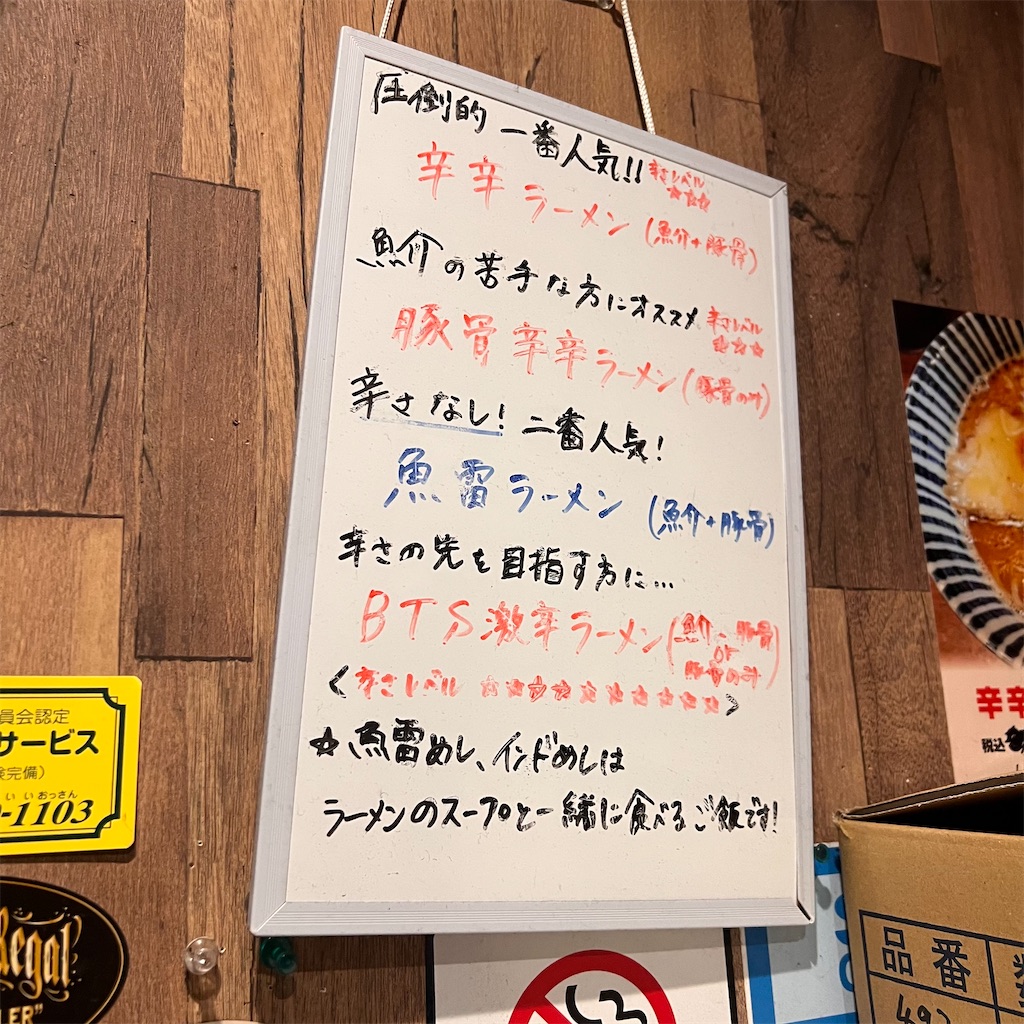 圧倒的 一番人気!!
辛さレベル
☆☆☆
辛辛ラーメン (魚介+豚骨)
魚介の苦手な方にオススメ
辛さレベル
☆☆☆
豚骨辛辛ラーメン (豚骨のみ)
辛さなし! 二番人気!
魚雷ラーメン (魚介+豚骨)
辛さの先を目指す方に…
BTS激辛ラーメン (魚介+豚骨
or
豚骨のみ)
<辛さレベル ☆☆☆☆☆☆☆☆☆☆>
☆魚雷めし、インドめしは
ラーメンのスープと一緒に食べるご飯です!
員会認定
サービス
完備)
いいおっさん
-1103
Regal
LER"
辛辛
税込
品番